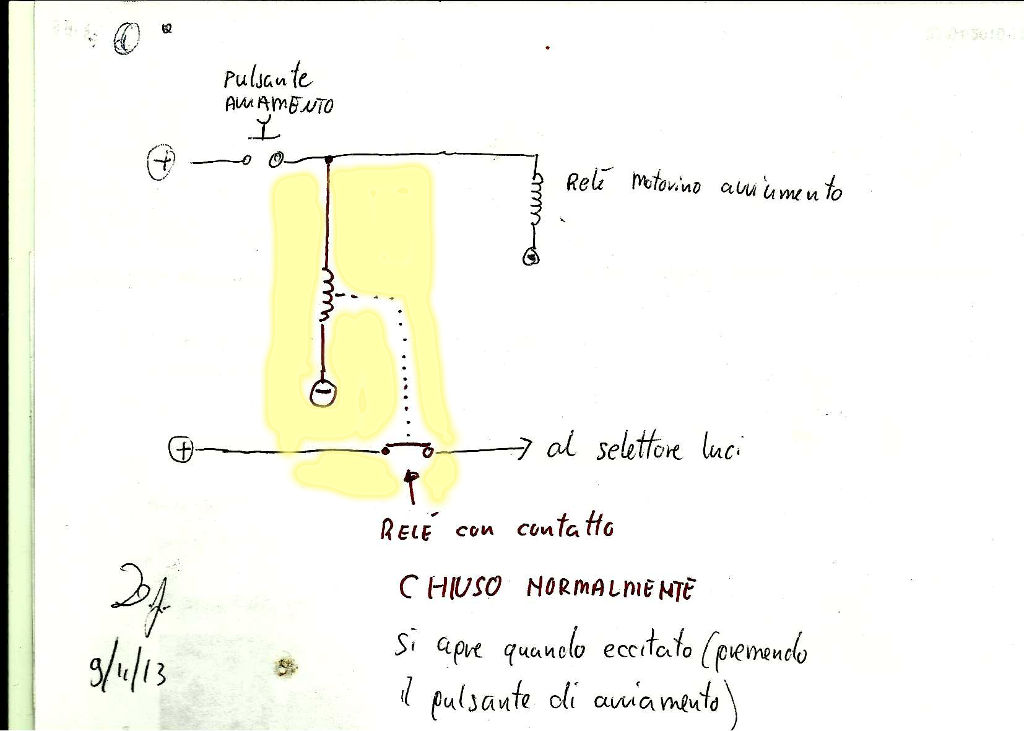 Pulsante
AVVIAMENTO
+
Relè motorino avviamento
-
+
al selettore luci
RELÉ con contatto
CHIUSO NORMALMENTE
si apre quando eccitato (premendo
il pulsante di avviamento)
9/11/13